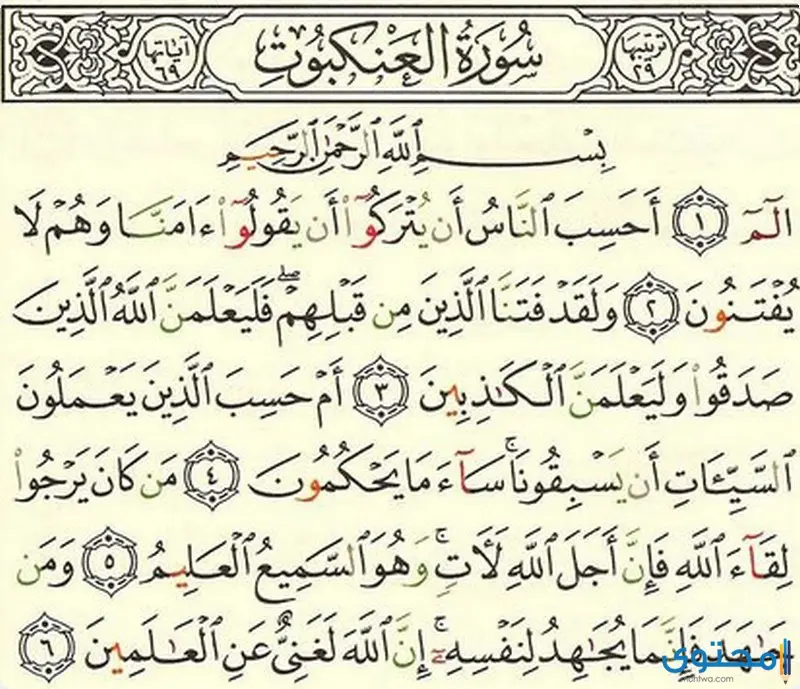 ترتيبها ٢٩ سُورَةُ الْعَنْكَبُوتِ آياتها ٦٩
بِسْمِ ٱللَّهِ ٱلرَّحْمَٰنِ ٱلرَّحِيمِ
الٓمٓ ١ أَحَسِبَ ٱلنَّاسُ أَن يُتْرَكُوٓا۟ أَن يَقُولُوٓا۟ ءَامَنَّا وَهُمْ لَا
يُفْتَنُونَ ٢ وَلَقَدْ فَتَنَّا ٱلَّذِينَ مِن قَبْلِهِمْ ۖ فَلَيَعْلَمَنَّ ٱللَّهُ ٱلَّذِينَ
صَدَقُوا۟ وَلَيَعْلَمَنَّ ٱلْكَٰذِبِينَ ٣ أَمْ حَسِبَ ٱلَّذِينَ يَعْمَلُونَ
ٱلسَّيِّـَٔاتِ أَن يَسْبِقُونَا ۚ سَآءَ مَا يَحْكُمُونَ ٤ مَن كَانَ يَرْجُوا۟
لِقَآءَ ٱللَّهِ فَإِنَّ أَجَلَ ٱللَّهِ لَءَاتٍ ۚ وَهُوَ ٱلسَّمِيعُ ٱلْعَلِيمُ ٥ وَمَن
جَٰهَدَ فَإِنَّمَا يُجَٰهِدُ لِنَفْسِهِۦٓ ۚ إِنَّ ٱللَّهَ لَغَنِىٌّ عَنِ ٱلْعَٰلَمِينَ ٦
محتوى
muhtwa.com